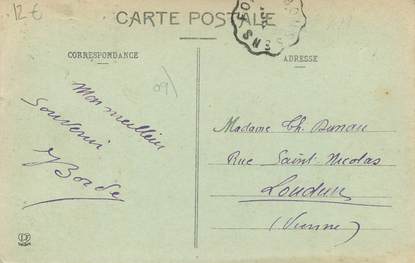 12 €
CARTE POSTALE
CORRESPONDANCE
ADRESSE
09
Mon meilleur
souvenir
Borde
Madame Ch.
Rue Saint-Nicolas
Loudun
(Vienne)